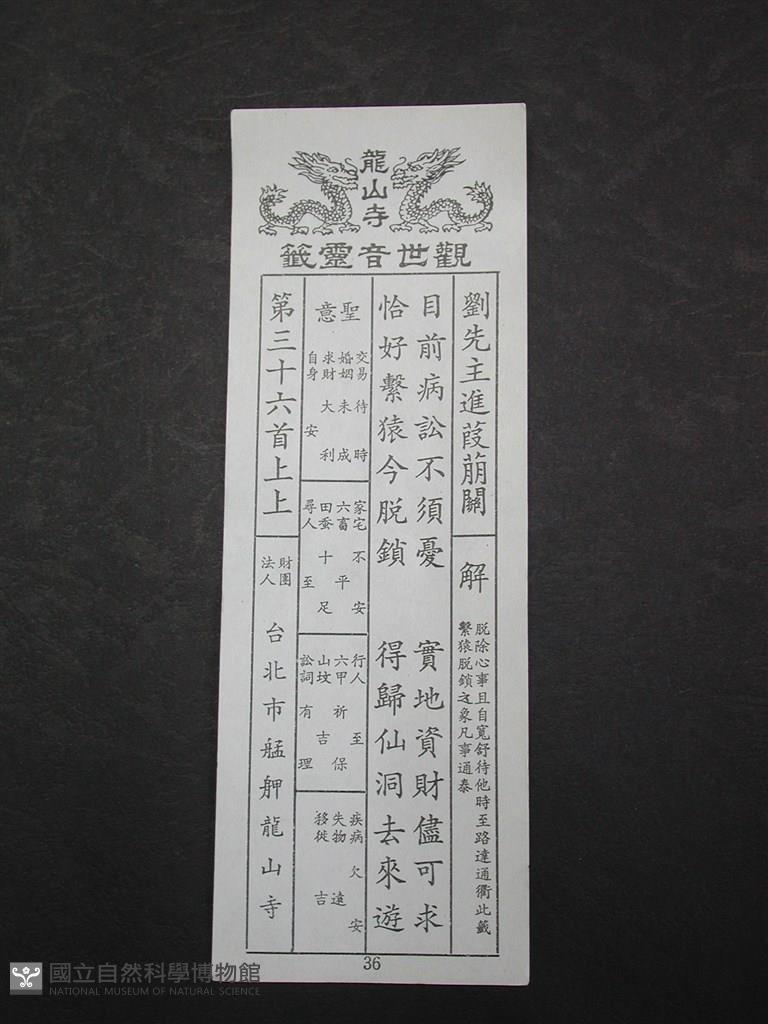 龍山寺
觀世音靈籤
劉先主進葭萠關
解
脱除心事且自寬舒待他時至路達通衢此籤
繫猿脱鎖之象凡事通泰
目前病訟不須憂 實地資財儘可求
恰好繫猿今脱鎖 得歸仙洞去來遊
聖意
交易 待時
婚姻 未成
求財 大利
自身 安
家宅 不安
六畜 平
田蚕 十足
尋人 至
行人 至
六甲 祈保
山坟 吉
訟詞 有理
疾病 欠安
失物 遠
移徙 吉
第三十六首上上
財團法人
台北市艋舺龍山寺
36
國立自然科學博物館
NATIONAL MUSEUM OF NATURAL SCIENCE